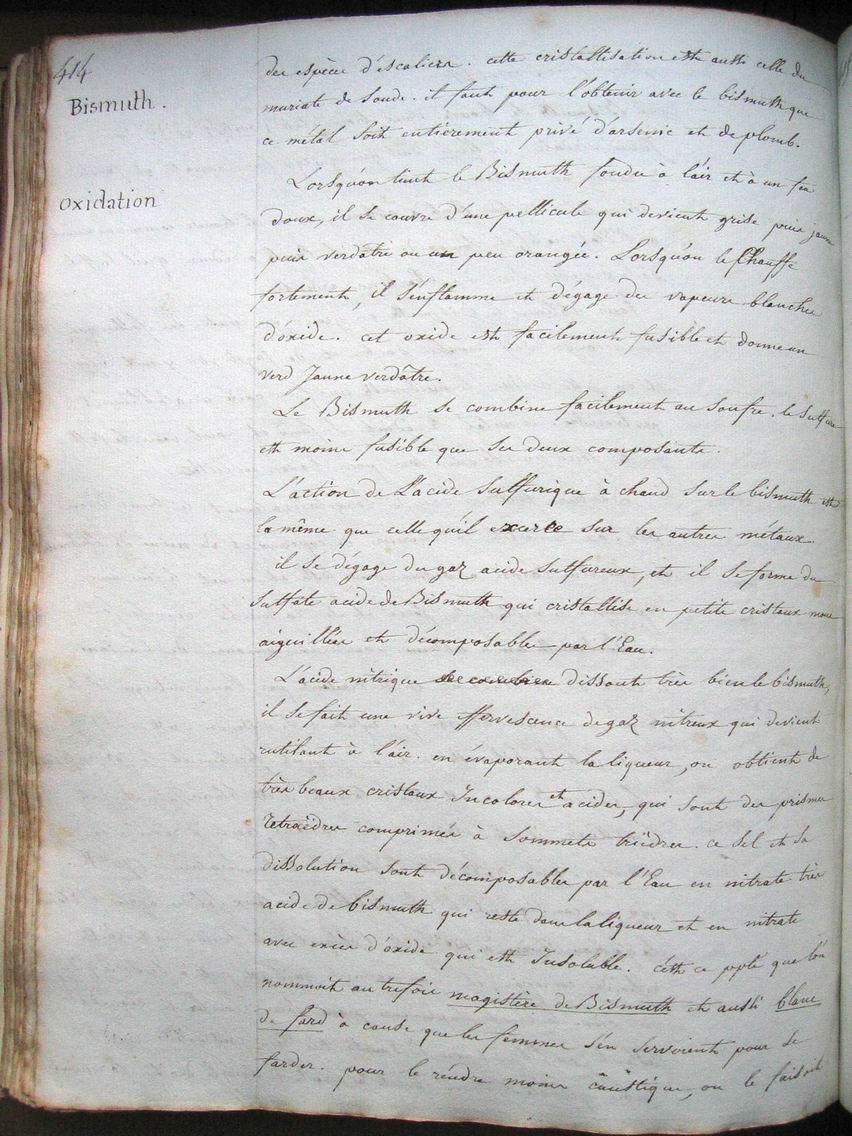 414
Bismuth.
Oxidation
des espèces d'escaliers. cette cristallisation est aussi celle du
muriate de soude. il faut pour l'obtenir avec le bismuth que
ce métal soit entierement privé d'arsenic et de plomb.
Lorsqu'on tient le Bismuth fondu à l'air et à un feu
doux, il se couvre d'une pellicule qui devient grise puis jaune
puis verdâtre ou un peu orangée. Lorsqu'on le Chauffe
fortement, il s'enflamme et dégage des vapeurs blanches
d'oxide. cet oxide est facilement fusible et donne un
verd Jaune verdâtre.
Le Bismuth se combine facilement au soufre. le sulfure
est moins fusible que ses deux composants.
L'action de L'acide Sulfurique à chaud sur le bismuth est
la même que celle qu'il exerce sur les autres métaux.
il se dégage du gaz acide sulfureux, et il se forme du
Sulfate acide de Bismuth qui cristallise en petits cristaux mous
aiguillés et décomposables par l'Eau.
L'acide nitrique dissout très bien le bismuth,
il se fait une vive effervescence de gaz nitreux qui devient
rutilant à l'air. en évaporant la liqueur, on obtient de
très beaux cristaux Incolores et acides, qui sont des prismes
Tetraëdres comprimés à sommets trièdres. ce sel et sa
dissolution sont décomposables par l'Eau en nitrate très
acide de bismuth qui reste dans la liqueur et en nitrate
avec excès d'oxide qui est Insoluble. c'est ce ppté que l'on
nommoit autrefois magistère de Bismuth et aussi blanc
de fard à cause que les femmes s'en servoient pour se
farder. pour le rendre moins caustique, on le faisoit